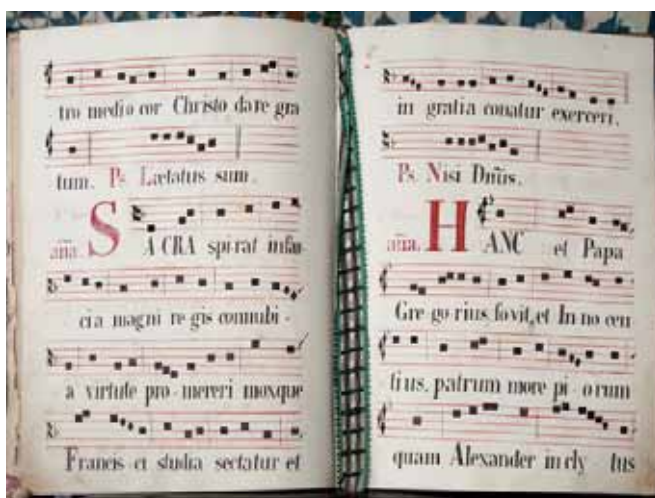 tro medio cor Christo dare gra
tum. Ps. Lætatus sum.
aña. SACRA spirat infan
cia magni re gis connubi -
a virtute pro - mereri moxque
Francis ci studia sectatur et
in gratia conatur exerceri.
Ps. Nisi Dñus.
aña. HANC et Papa
Gre go rius fovit, et In no cen
tius, patrum more pi - orum
quam Alexander in cly tus